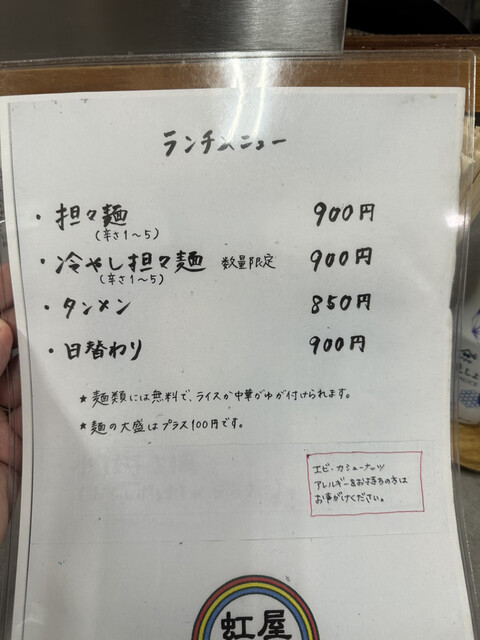 ランチメニュー
・担々麺 900円
(辛さ1～5)
・冷やし担々麺 数量限定 900円
(辛さ1～5)
・タンメン 850円
・日替わり 900円
★麺類には無料で、ライスか中華がゆが付けられます。
★麺の大盛はプラス100円です。
エビ・カシューナッツ
アレルギーをお持ちの方は
お声がけください。
虹屋